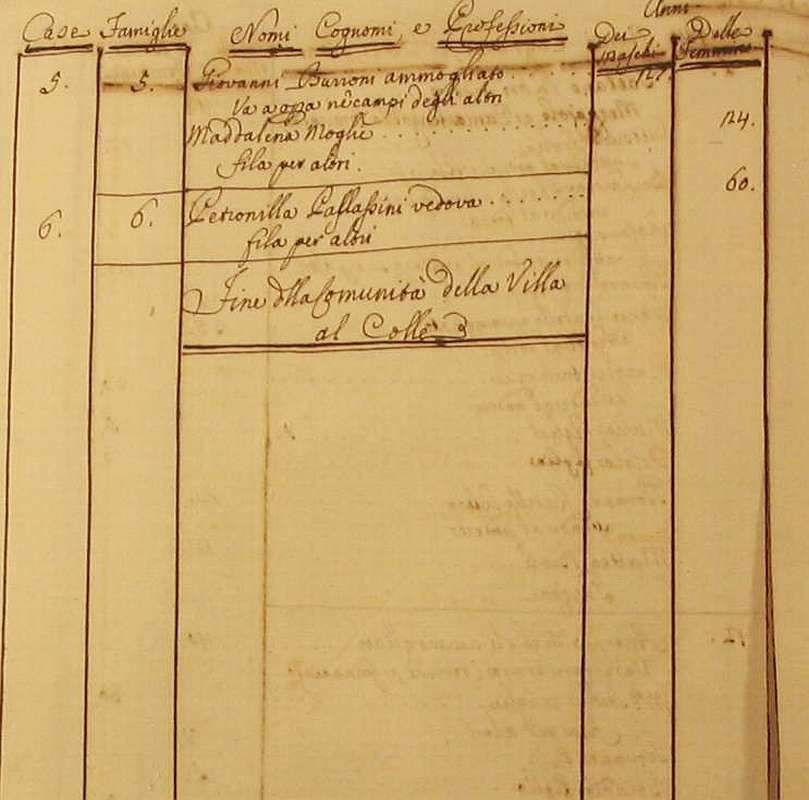 Anni
Case Famiglie Nomi Cognomi, e Professioni Dei Maschi Delle Femmine
5. 5. Giovanni Burroni ammogliato
Va a opra ne campi degli altri
Maddalena Moglie 124.
fila per altri.
60.
6. 6. Petronilla Passassini vedova
fila per altri
Fine della Comunità della Villa
al Colle
12.